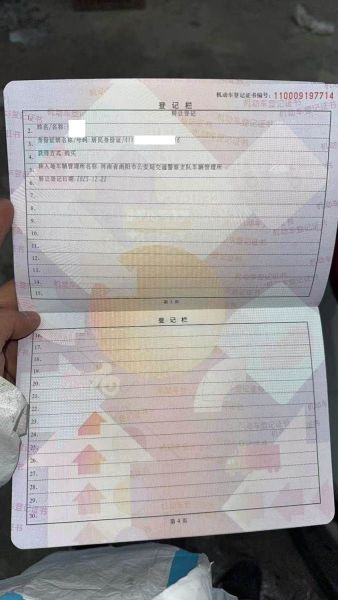 机动车登记证书编号：110009197714
登 记 栏
1. 转让登记
2. 姓名/名称：
3. 身份证明名称/号码：居民身份证/411
4. 获得方式：购买
5. 转入地车辆管理所名称：河南省南阳市公安局交通警察支队车辆管理所
6. 转让登记日期：
7.
8.
9.
10.
11.
12.
13.
14.
15.
第 3 页
登 记 栏
16.
17.
18.
19.
20.
21.
22.
23.
24.
25.
26.
27.
28.
29.
30.
第 4 页